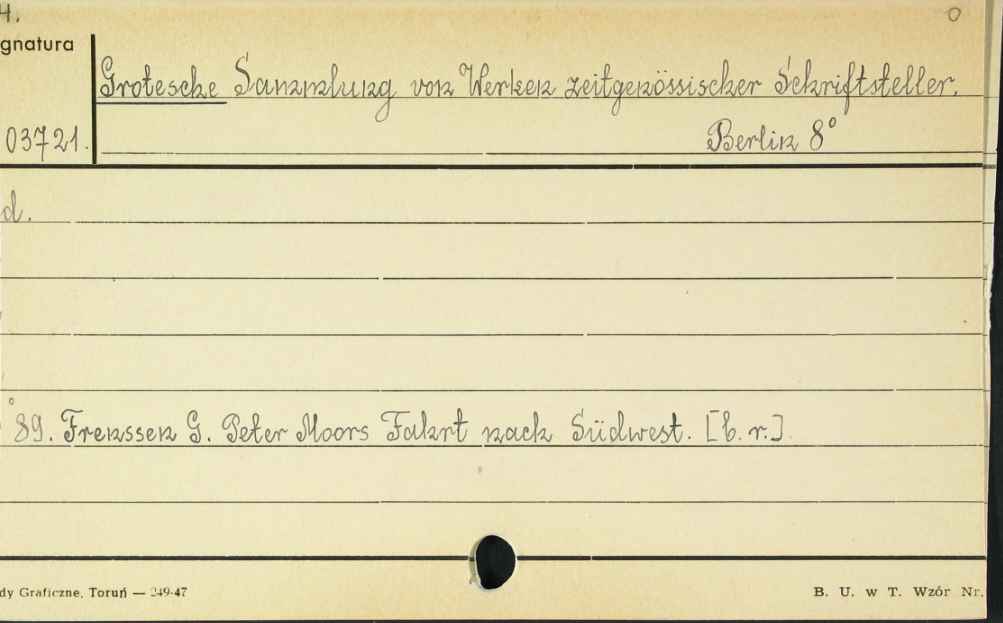 4. 0
gnatura
Grotesche Sammlung von Werken zeitgenössischer Schriftsteller.
03721. Berlin 8°
d.
° 89. Frenssen G. Peter Moors Fahrt nach Südwest. [b. r.]
dy Graficzne, Toruń — 249-47 B. U. w T. Wzór Nr.